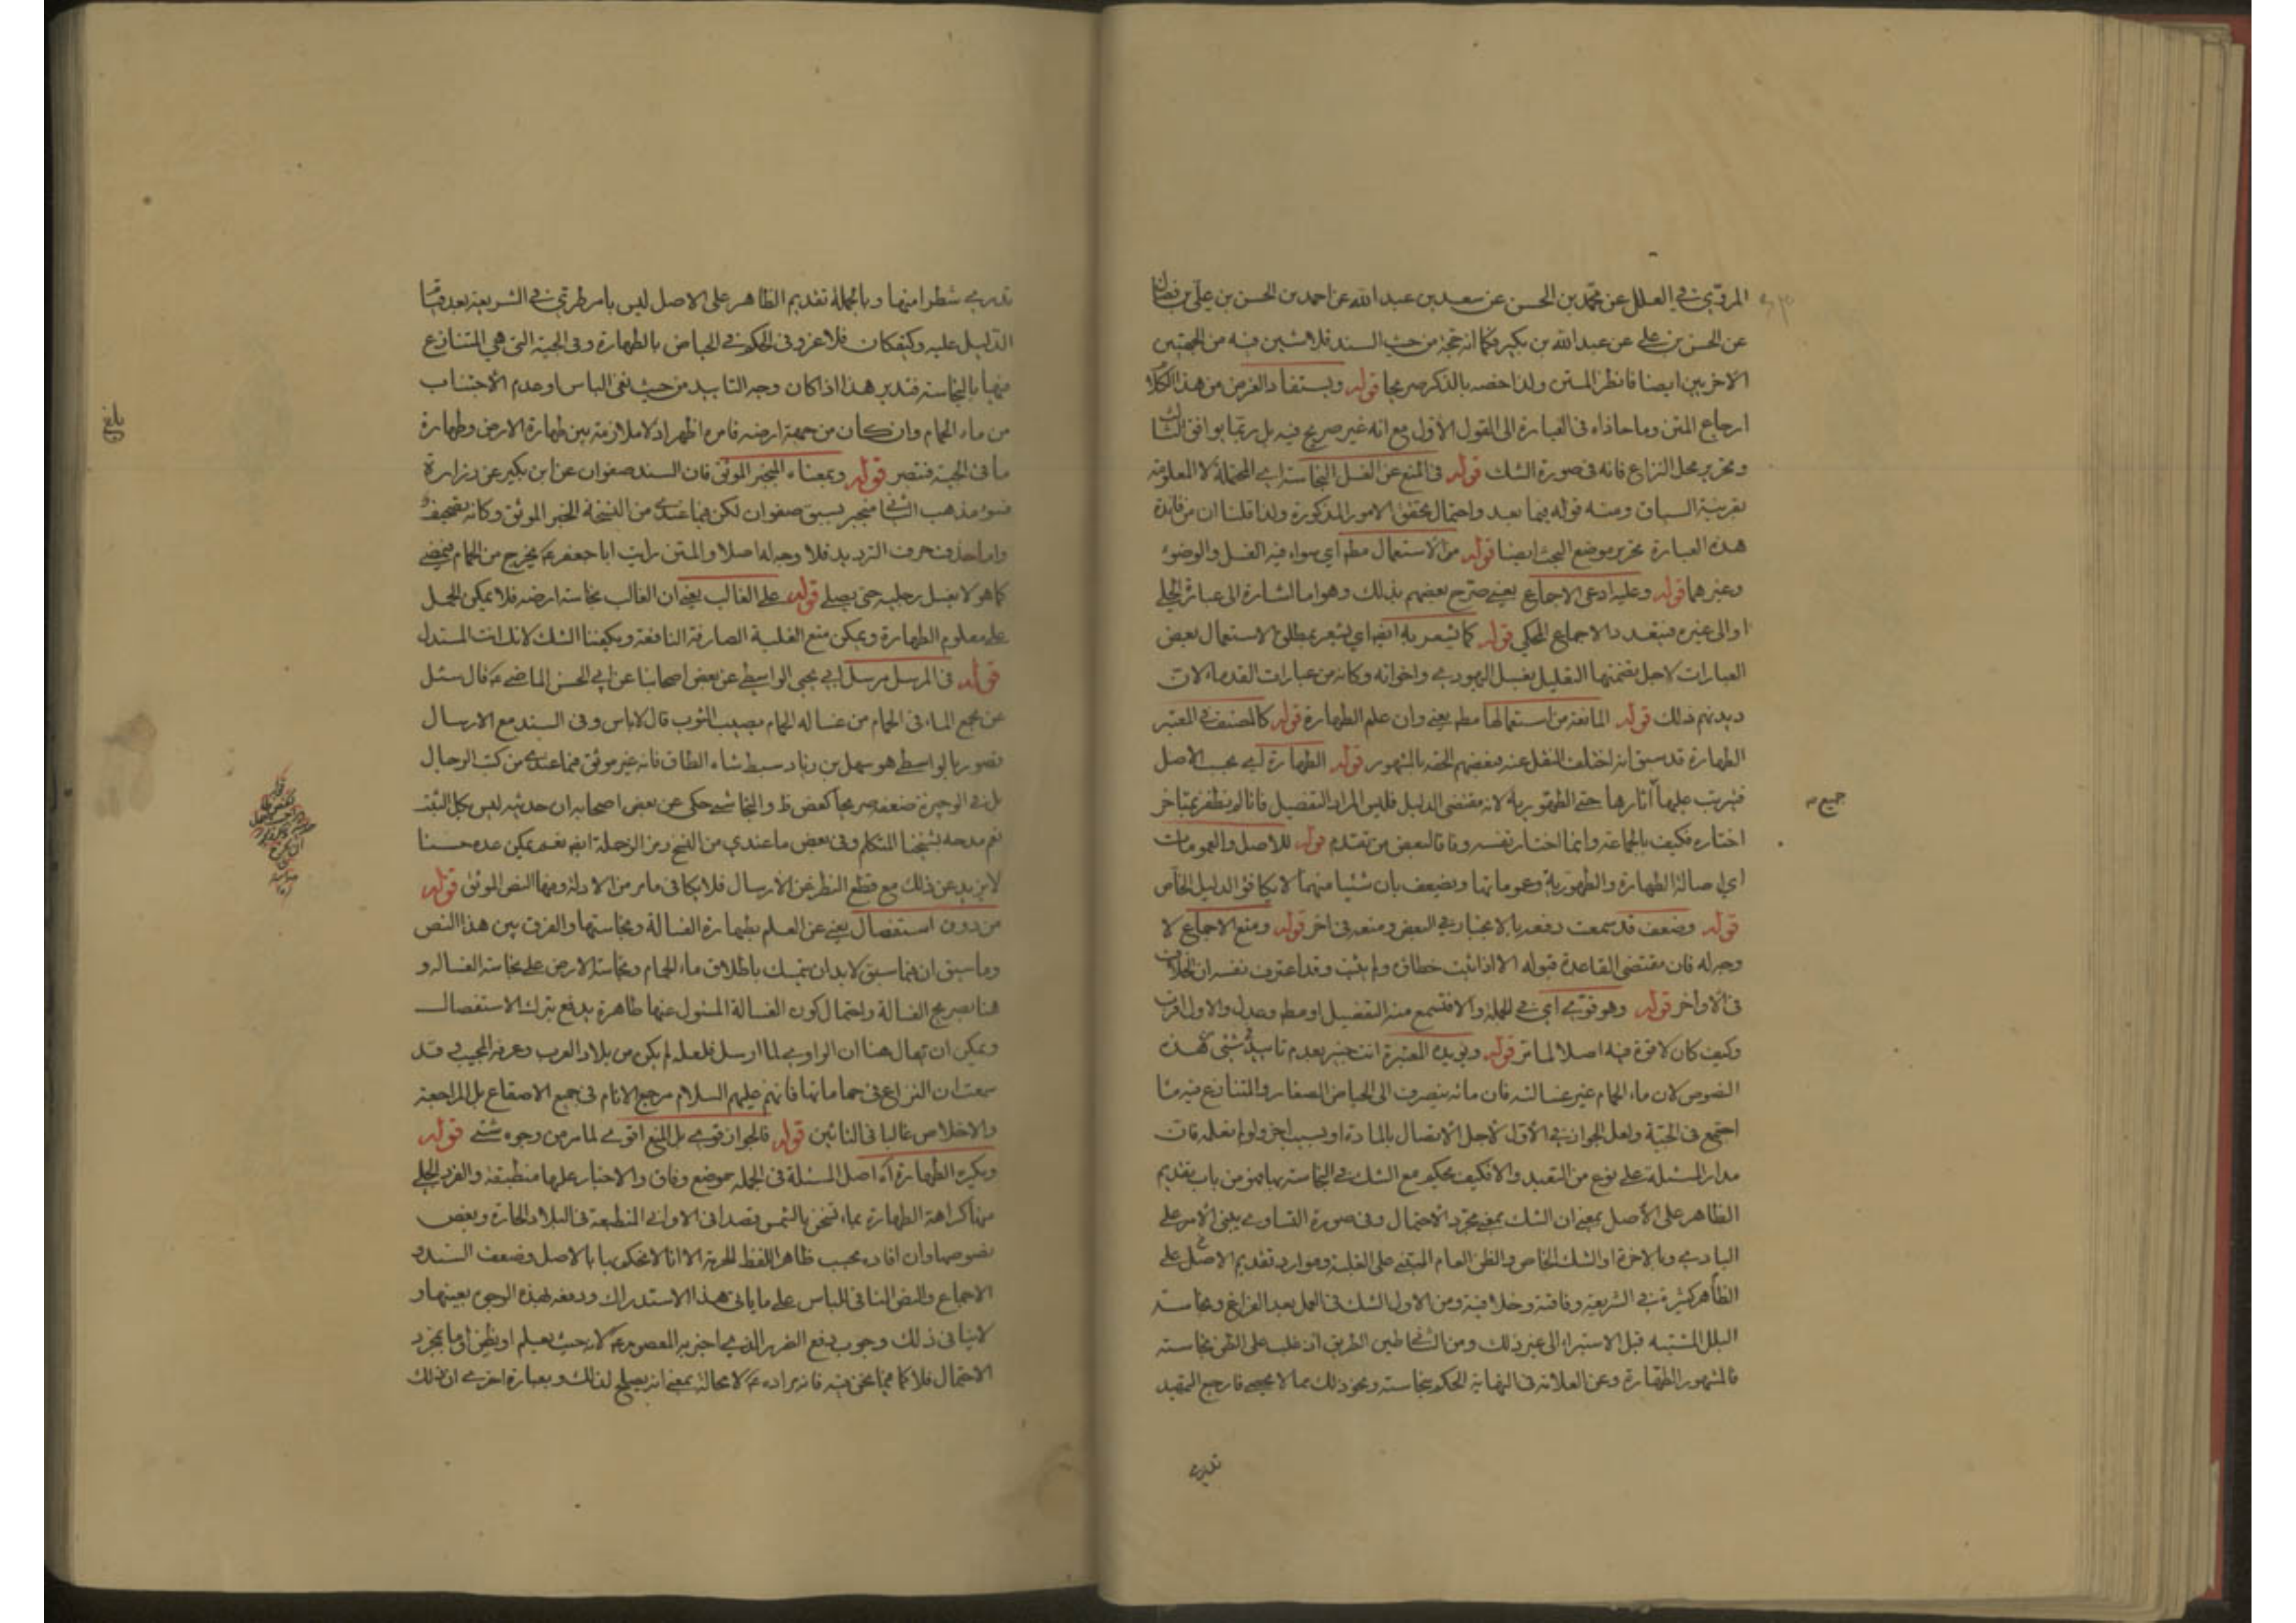 المروي في العلل عن محمد بن الحسن عن سعد بن عبد الله عن احمد بن الحسن بن علي بن فضال
عن الحسن بن علي عن عبد الله بن بكير فكما انه حجة من حيث السند فلا شين فيه من الجهتين
الاخريين ايضا فانظر المتن ولذا خصه بالذكر صريحا قوله ويستفاد الغرض من هذا الكلام
ارجاع المتن وما حاذاه في العبارة الى القول الأول مع انه غير صريح فيه بل ربما يوافق الثالث
وتحرير محل النزاع فانه في صورة الشك قوله في المنع عن الغسل النجاسة اي المحتملة لا المعلومة
بقرينة السياق ومنه قوله فيما بعد واحتمال تحقق الامور المذكورة ولذا قلنا ان من فائدة
هذه العبارة تحرير موضع البحث ايضا قوله من الاستعمال مطم اي سواء فيه الغسل والوضوء
وغيرهما قوله وعليه ادعى الاجماع يعني صرح بعضهم بذلك وهو اما اشارة الى عبارة الحلي
او الى غيره فيتعدد الاجماع المحكي قوله كما يشعر به ايضا اي يشعر بمطلق الاستعمال بعض
العبارات لاجل تضمنها التعليل بغسل اليهودي واخوانه وكانه من عبارات القدماء لان
ديدنهم ذلك قوله المانعة من استعمالها مطم يعني وان علم الطهارة قوله كالمصنف في المعتبر
الطهارة قد سبق انه اختلف النقل عنه فبعضهم الحقه بالمشهور قوله الطهارة اي بحسب الاصل
فيترتب عليها آثارها حتى الطهورية لانه مقتضى الدليل فليس المراد التفصيل فانا لم نظفر بمتاخر
اختاره فكيف بالجماعة وانما اختاره نفسه وفاقا لبعض من تقدم قوله للاصل والعمومات
اي اصالة الطهارة والطهورية وعموماتها ويضعف بان شيئا منهما لا يكافؤ الدليل الخاص
قوله وضعف قد سمعت دفعه بالاعتبار في البعض ومنعه في اخر قوله ومنع الاجماع لا
وجه له فان مقتضى القاعدة قبوله الا اذا ثبت خطاؤه ولم يثبت وقد اعترف نفسه ان الخلاف
في الاواخر قوله وهو قوي اي في الجملة والا فتسمع منه التفصيل او مطم وعدل والاول اقرب
وكيف كان لا قوة فيه اصلا لما مر قوله ويؤيده المعتبرة انت خبير بعدم تاييد شئ لهذه
النصوص لان ماء الحمام غير غسالته فان مائه ينصرف الى الحياض الصغار والمتنازع فيه ما
اجتمع في الجية ولعل الجواز في الأول لأجل الاتصال بالمادة او بسبب اخر ولو لم نعلمه فان
مدار المسئلة على نوع من التعبد والا فكيف يحكم مع الشك في النجاسة بها فهو من باب تقديم
الظاهر على الأصل بمعنى ان الشك بمعنى مجرد الاحتمال وفي صورة التساوي يبنى الأمر على
البادي وبالاخرة او الشك الخاص والظن العام المبتنى على الغلبة وموارد تقديم الاصل على
الظاهر كثيرة في الشريعة وفاقية وخلافية ومن الاول الشك في العمل بعد الفراغ ونجاسة
البلل المشتبه قبل الاستبراء الى غير ذلك ومن الثاني طين الطريق اذ غلب على الظن نجاسته
فالمشهور الطهارة وعن العلامة في النهاية الحكم بنجاسته ونحو ذلك مما لا يحصى فارجع التمهيد
تدري
جميع
تدري شطرا منها وبالجملة تقديم الظاهر على الاصل ليس بامر طري في الشريعة بعد قيام
الدليل عليه وكيف كان فلا غرو في الحكم في الحياض بالطهارة وفي الجية التي هي المتنازع
فيها بالنجاسة فتدبر هذا اذا كان وجه التاييد من حيث نفى الباس او عدم الأجتناب
من ماء الحمام وان كان من جهة ارضه فامره اظهر اذ لا ملازمة بين طهارة الارض وطهارة
ما في الجية فتبصر قوله وبمعناه المنجبر الموثق فان السند صفوان عن ابن بكير عن زرارة
فسوء مذهب الثاني منجبر بسبق صفوان لكن فيما عندي من النسخة الخبر الموثق وكانه تصحيف
واما حذف حرف الترديد فلا وجه له اصلا والمتن رايت ابا جعفر عم يخرج من الحمام فيمضي
كما هو لا يغسل رجليه حتى يصلي قوله على الغالب يعني ان الغالب نجاسة ارضه فلا يمكن الحمل
على معلوم الطهارة ويمكن منع الغلبة الصارفة النافعة ويكفينا الشك لانك انت المستدل
قوله في المرسل مرسل ابي يحيى الواسطي عن بعض اصحابنا عن ابي الحسن الماضي عم قال سئل
عن مجمع الماء في الحمام من غسالة الحمام يصيب الثوب قال لا باس وفي السند مع الارسال
قصور بالواسطي هو سهل بن زياد سبط شاه الطاق فانه غير موثق فيما عندي من كتب الرجال
بل في الوجيزة ضعفه صريحا كعض ظ والنجاشي حكى عن بعض اصحابه ان حديثه ليس بكل الثبت
نعم مدحه بشيخنا المتكلم وفي بعض ما عندي من النسخ رمز الرحلة ايضا نعم يمكن عده حسنا
لا يزيد عن ذلك مع قطع النظر عن الارسال فلا يكافئ ما مر من الادلة وفيها النص الموثق قوله
من دون استفصال يعني عن العلم بطهارة الغسالة ونجاستها والفرق بين هذا النص
وما سبق ان فيما سبق لا بد ان يتمسك باطلاق ماء الحمام ونجاسة الارض على نجاسة الغسالة و
هنا تصريح الغسالة واحتمال كون الغسالة المسئول عنها طاهرة يدفع بترك الاستفصال
ويمكن ان يقال هنا ان الراوي لما ارسل فلعله لم يكن من بلاد العرب وعرفه المجيب وقد
سمعت ان النزاع في حماماتها فانهم عليهم السلام مرجع الانام في جميع الاصقاع بل المراجعة
والاخلاص غالبا في النائين قوله فالجواز قوي بل المنع اقوى لما مر من وجوه شتى قوله
ويكره الطهارة آه اصل المسئلة في الجملة موضع وفاق والاخبار عليها منطبقة والفرد الجلي
منها كراهة الطهارة بماء تسخن بالشمس قصدا في الاواني المنطبعة في البلاد الحارة وبعض
نصوصها وان افاد بحسب ظاهر اللفظ الحرمة الا انا لا نحكم بها بالاصل وضعف السند و
الاجماع والنص النافي للباس على ما ياتي هذا الاستدراك ودفعه لهذه الوجوه بعينها و
لا ينافي ذلك وجوب دفع الضرر الذي اخبر به المعصوم عم لا حيث يعلم او يظن اما بمجرد
الاحتمال فلا كما فيما نحن فيه فانه مراده عم لا محالة بمعنى انه يصلح لذلك وبعبارة اخرى ان ذلك
بلغ